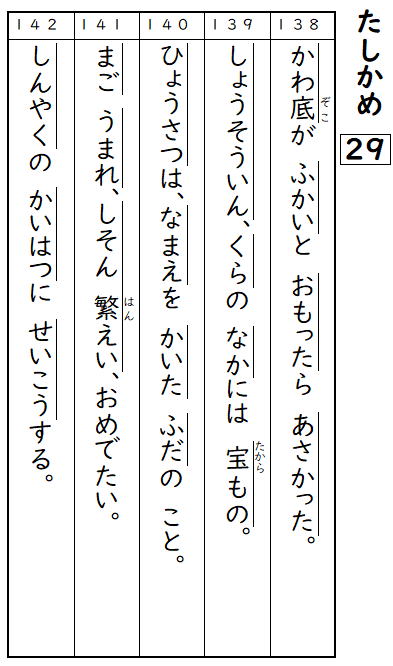 たしかめ
29
138
かわ底が ふかいと おもったら あさかった。
ぞこ
139
しょうそういん、くらの なかには 宝もの。
たから
140
ひょうさつは、なまえを かいた ふだの こと。
141
まご うまれ、しそん 繁えい、おめでたい。
はん
142
しんやくの かいはつに せいこうする。